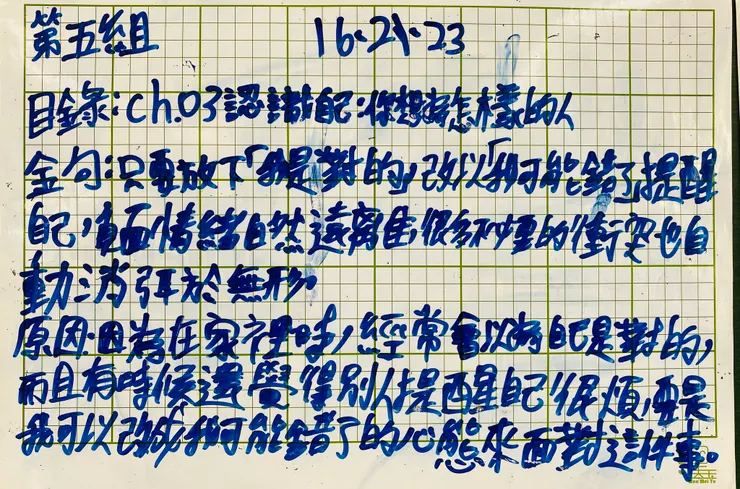 第五組 16、21、23
目錄:ch.03認識自己:你想當怎樣的人
金句:只要放下「我是對的」,改以「我可能錯了」提醒
自己,負面情緒自然遠離,很多不必要的衝突也自
動消弭於無形。
原因:因為在家裡時,經常會以為自己是對的,
而且有時候還覺得別人提醒自己很煩,要是
我可以改成我可能錯了的心態來面對這件事。